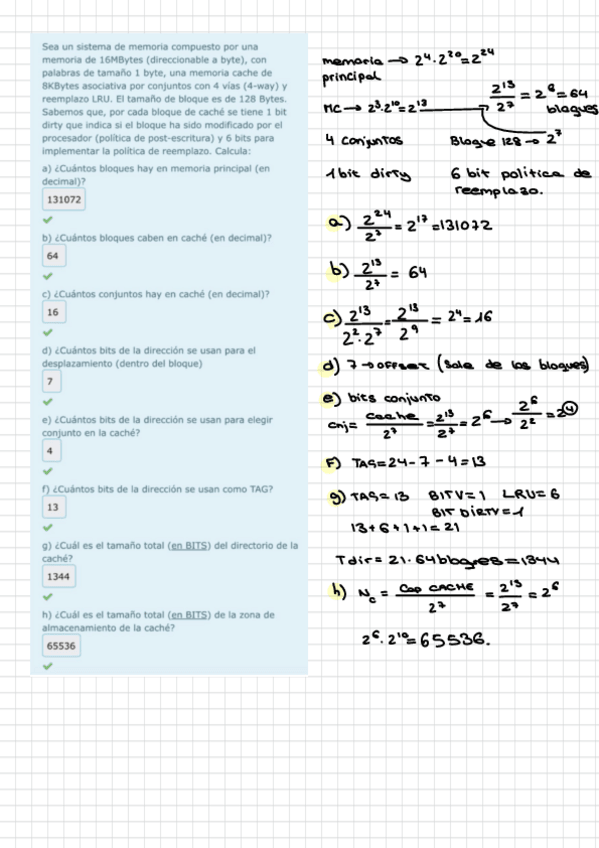 Sea un sistema de memoria compuesto por una
memoria de 16MBytes (direccionable a byte), con
palabras de tamaño 1 byte, una memoria cache de
8KBytes asociativa por conjuntos con 4 vías (4-way) y
reemplazo LRU. El tamaño de bloque es de 128 Bytes.
Sabemos que, por cada bloque de caché se tiene 1 bit
dirty que indica si el bloque ha sido modificado por el
procesador (política de post-escritura) y 6 bits para
implementar la política de reemplazo. Calcula:
a) ¿Cuántos bloques hay en memoria principal (en
decimal)?
131072
b) ¿Cuántos bloques caben en caché (en decimal)?
64
c) ¿Cuántos conjuntos hay en caché (en decimal)?
16
d) ¿Cuántos bits de la dirección se usan para el
desplazamiento (dentro del bloque)
7
e) ¿Cuántos bits de la dirección se usan para elegir
conjunto en la caché?
4
f) ¿Cuántos bits de la dirección se usan como TAG?
13
g) ¿Cuál es el tamaño total (en BITS) del directorio de la
caché?
1344
h) ¿Cuál es el tamaño total (en BITS) de la zona de
almacenamiento de la caché?
65536
memoria → 2⁴·2²⁰=2²⁴
principal
MC → 2³·2¹⁰=2¹³ → 2¹³/2⁷ = 2⁶ = 64
bloques
4 conjuntos Bloque 128 → 2⁷
1 bit dirty 6 bit politica de
reemplazo.
a) 2²⁴/2⁷ = 2¹⁷ = 131072
b) 2¹³/2⁷ = 64
c) 2¹³/2²·2⁷ = 2¹³/2⁹ = 2⁴ = 16
d) 7 → offset (Sale de los bloques)
e) bits conjunto
Cnj= Cache/2⁷ = 2¹³/2⁷ = 2⁶ → 2⁶/2² = 2⁴
F) TAG=24-7-4=13
g) TAG=13 BITV=1 LRU=6
BIT DIRTY=1
13+6+1+1=21
Tdir= 21·64bloques=1344
h) Nc = Cap CACHE/2⁷ = 2¹³/2⁷ = 2⁶
2⁶·2¹⁰=65536.